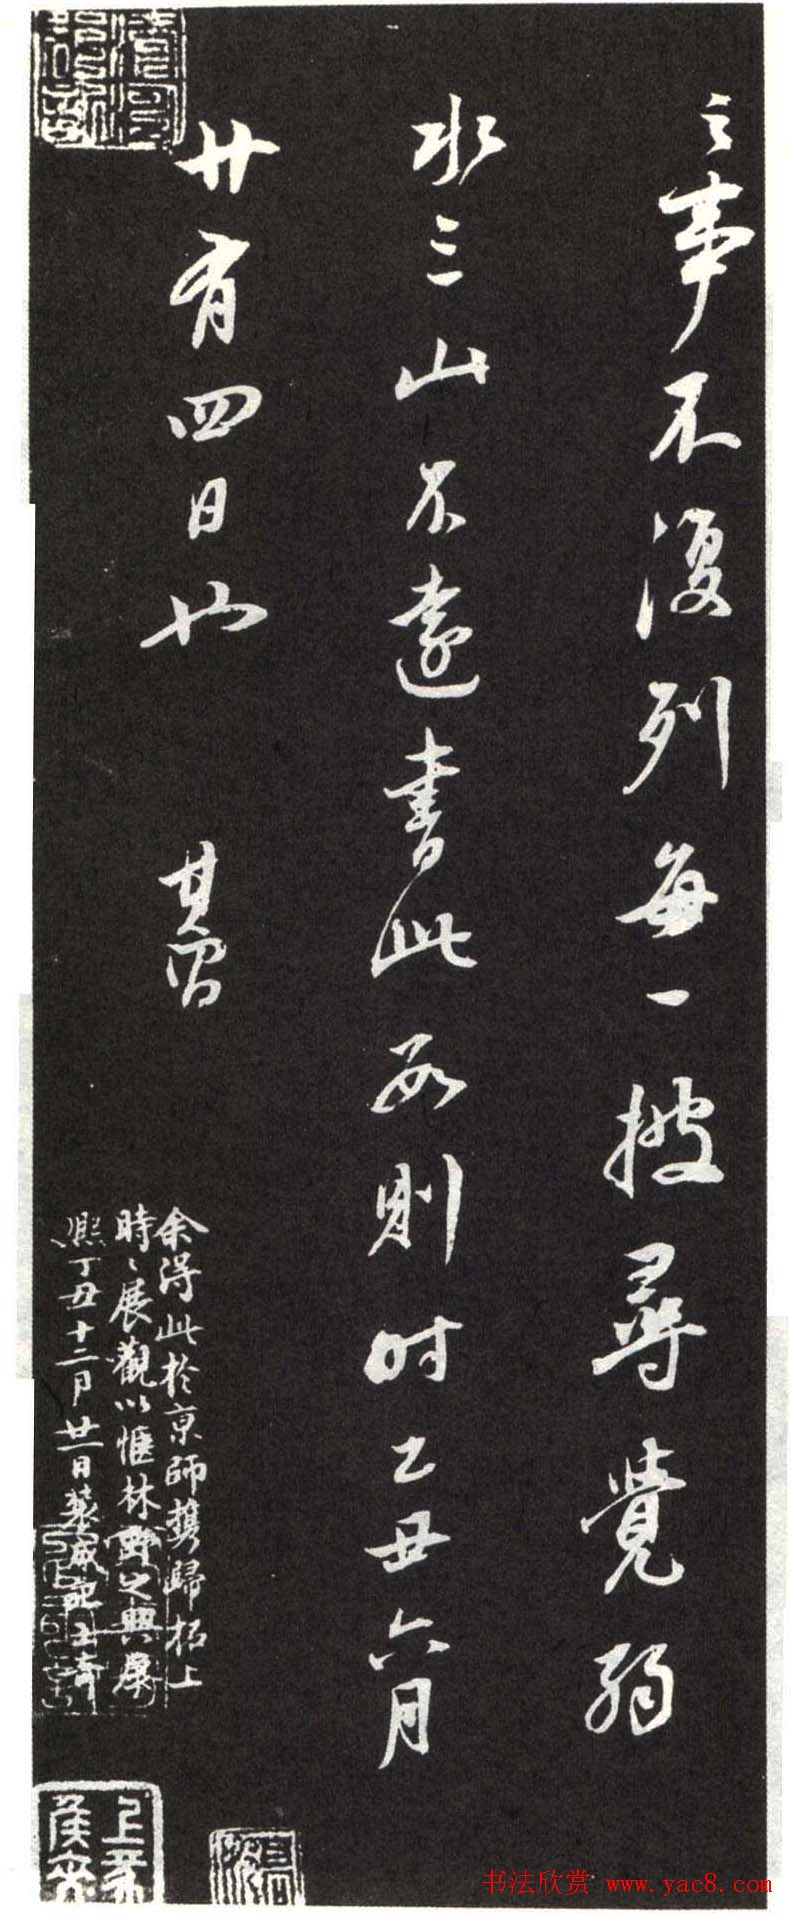 之事不復列每一披尋覺弱
水三山不遠書此數則时乙丑六月
廿有四日也 其昌
余得此於京師携歸柘上
時々展觀以愜林野之興康
熙丁丑十二月廿一日裝成記士奇
书法欣赏 www.yac8.com